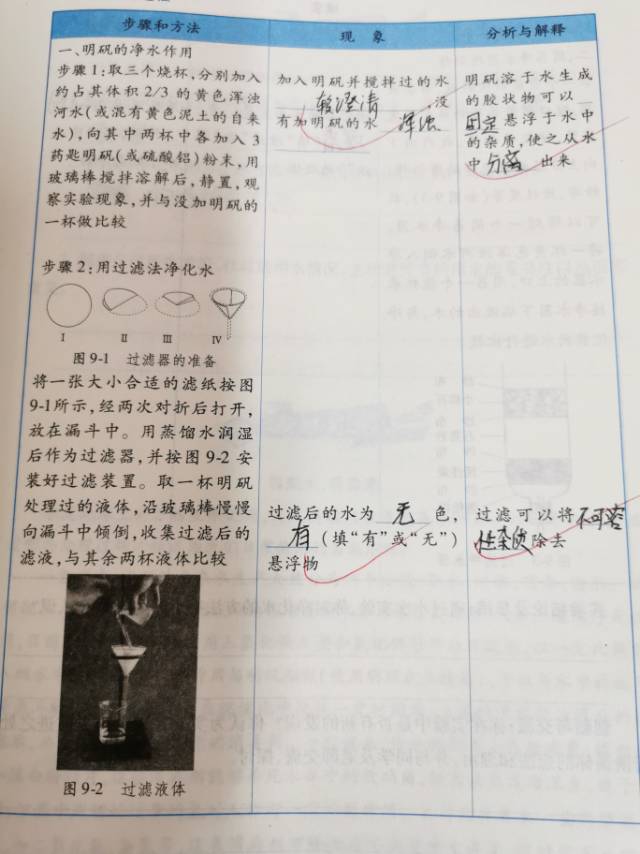 步骤和方法
现 象
分析与解释
一、明矾的净水作用
步骤1:取三个烧杯,分别加入
约占其体积2/3的黄色浑浊
河水(或混有黄色泥土的自来
水),向其中两杯中各加入3
药匙明矾(或硫酸铝)粉末,用
玻璃棒搅拌溶解后,静置,观
察实验现象,并与没加明矾的
一杯做比较
加入明矾并搅拌过的水
较澄清,没
有加明矾的水 浑浊
明矾溶于水生成
的胶状物可以
固定悬浮于水中
的杂质,使之从水
中分离出来
步骤2:用过滤法净化水
Ⅰ Ⅱ Ⅲ Ⅳ
图9-1 过滤器的准备
将一张大小合适的滤纸按图
9-1所示,经两次对折后打开,
放在漏斗中。用蒸馏水润湿
后作为过滤器,并按图9-2安
装好过滤装置。取一杯明矾
处理过的液体,沿玻璃棒慢慢
向漏斗中倾倒,收集过滤后的
滤液,与其余两杯液体比较
过滤后的水为 无 色,
有(填“有”或“无”)
悬浮物
过滤可以将不可溶
性杂质除去
图9-2 过滤液体